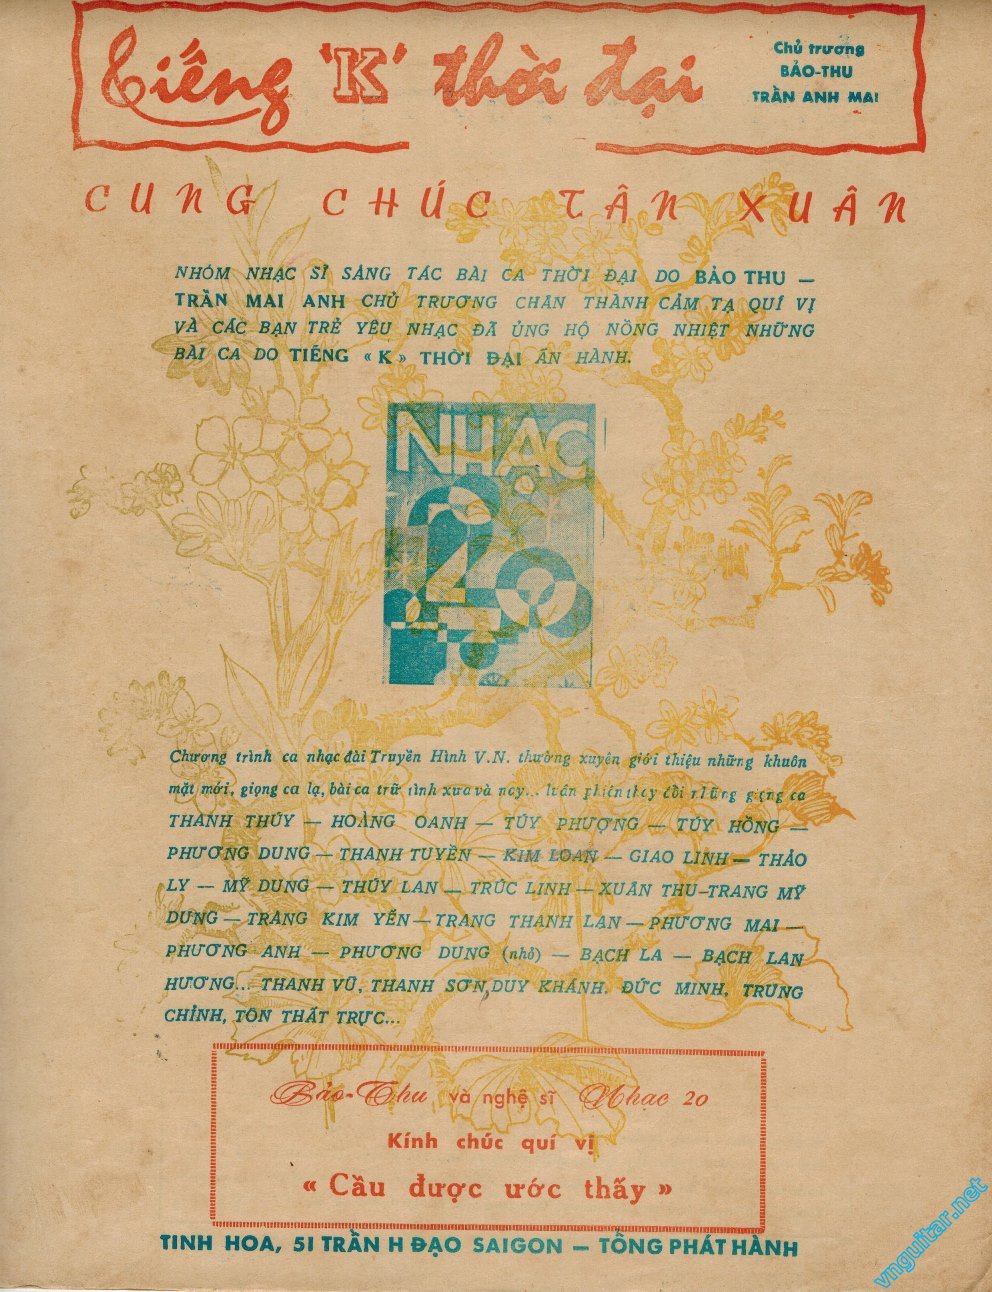 Tiếng 'K' thời đại
Chủ trương
BẢO-THU
TRẦN ANH MAI
CUNG CHÚC TÂN XUÂN
NHÓM NHẠC SĨ SÁNG TÁC BÀI CA THỜI ĐẠI DO BẢO THU —
TRẦN MAI ANH CHỦ TRƯƠNG CHÂN THÀNH CẢM TẠ QUÍ VỊ
VÀ CÁC BẠN TRẺ YÊU NHẠC ĐÃ ỦNG HỘ NỒNG NHIỆT NHỮNG
BÀI CA DO TIẾNG « K » THỜI ĐẠI ẤN HÀNH.
NHẠC
20
Chương trình ca nhạc đài Truyền Hình V.N. thường xuyên giới thiệu những khuôn
mặt mới, giọng ca lạ, bài ca trữ tình xưa và nay... luân phiên thay đổi những giọng ca
THANH THÚY — HOÀNG OANH — TÚY PHƯỢNG — TÚY HỒNG —
PHƯƠNG DUNG — THANH TUYỀN — KIM LOAN — GIAO LINH — THẢO
LY — MỸ DUNG — THÚY LAN — TRÚC LINH — XUÂN THU — TRANG MỸ
DUNG — TRANG KIM YẾN — TRANG THANH LAN — PHƯƠNG MAI —
PHƯƠNG ANH — PHƯƠNG DUNG (nhỏ) — BẠCH LA — BẠCH LAN
HƯƠNG... THANH VŨ, THANH SƠN, DUY KHÁNH, ĐỨC MINH, TRUNG
CHỈNH, TÔN THẤT TRỰC...
Bảo-Thu và nghệ sĩ Nhac 20
Kính chúc quí vị
« Cầu được ước thấy »
TINH HOA, 51 TRẦN H ĐẠO SAIGON — TỔNG PHÁT HÀNH
vnguitar.net